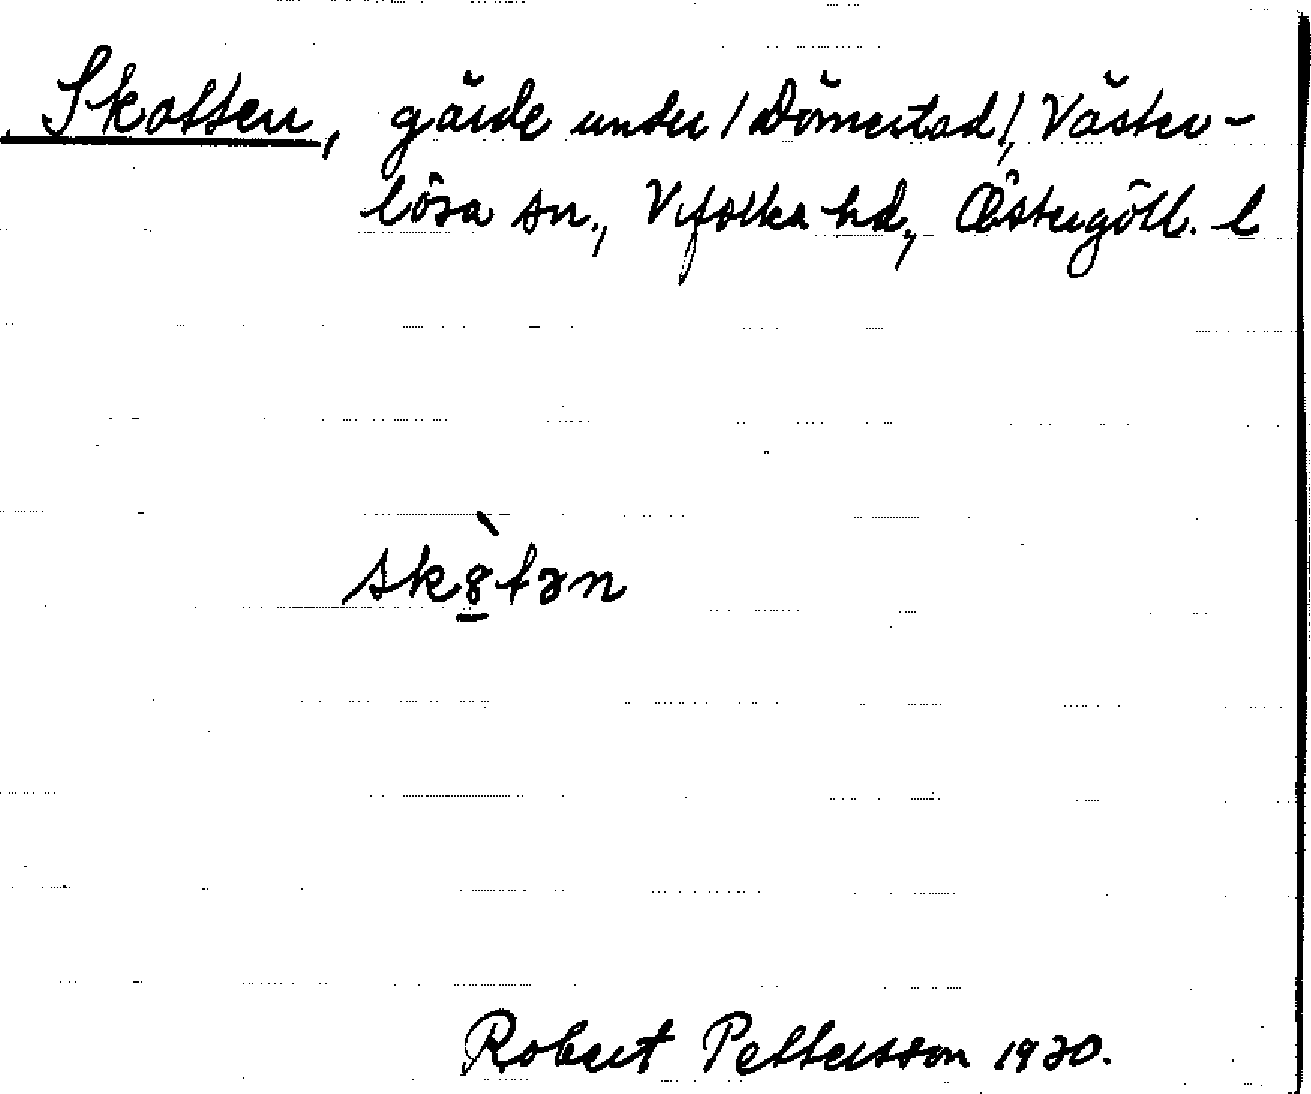 Skotten, gärde under / Dömestad /, Väster-
lösa sn., Vifolka hd, Östergötl. l
skò̱tən
Robert Pettersson 1930.